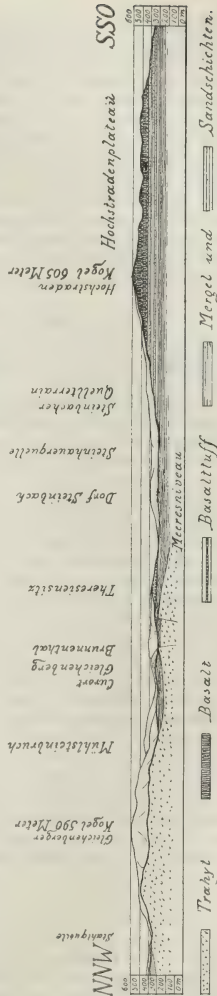 NNW
SSO
Stahlquelle
Gleichenberger
Kogel 590 Meter
Mühlsteinbruch
Curort
Gleichenberg
Brunnenthal
Theresiensitz
Dorf Steinbach
Steinhauerquelle
Steinbacher
Quellterrain
Hochstraden
Kogel 605 Meter
Hochstradenplateau
600
500
400
300
200
100
0 m
600
500
400
300
200
100
0 m
Meeresniveau
Trahyt
Basalt
Basalttuff
Mergel und
Sandschichten.